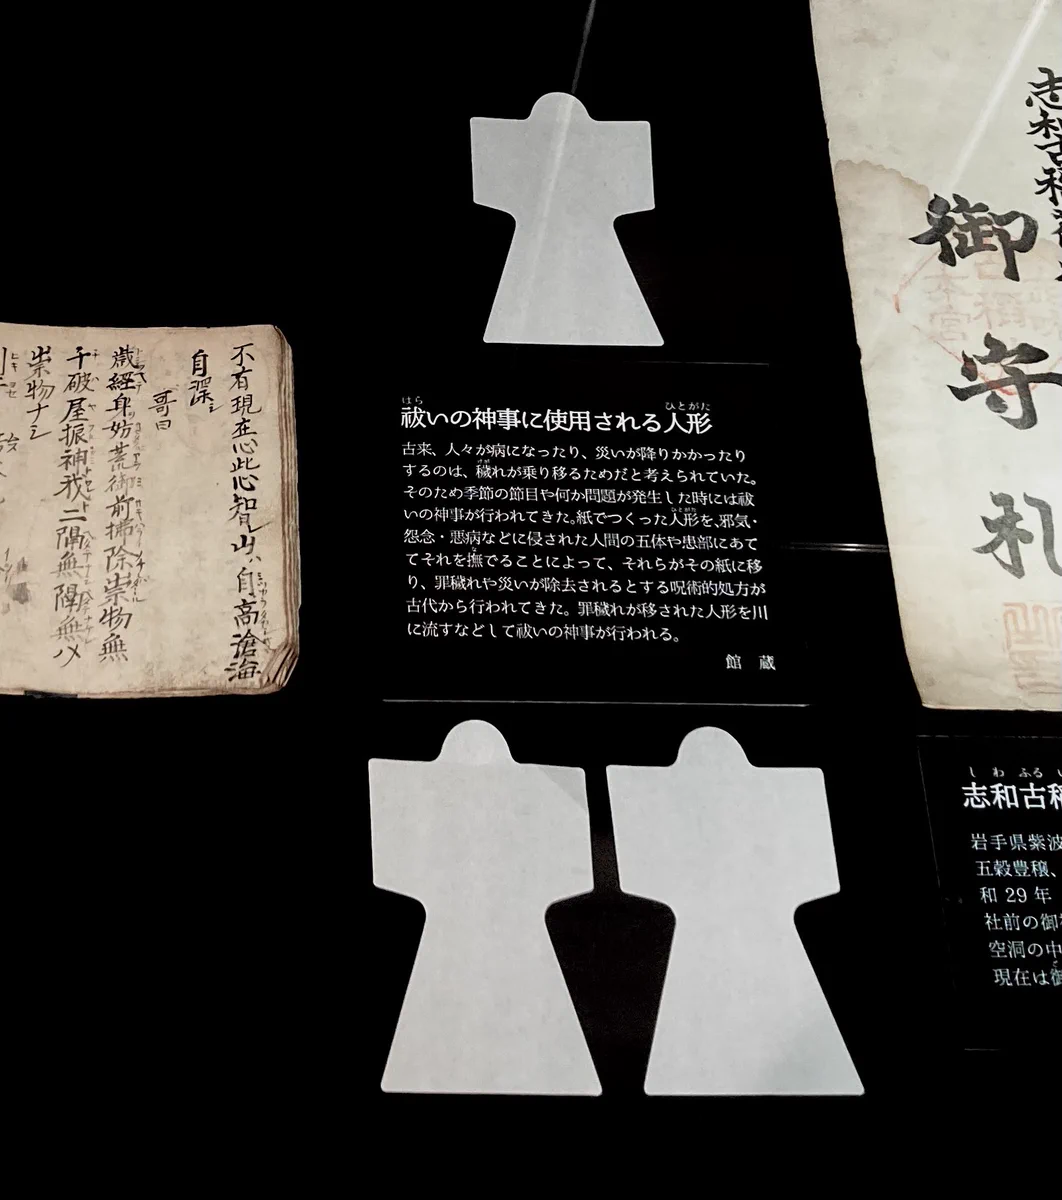 祓いの神事に使用される人形
はら
ひとがた
古来、人々が病になったり、災いが降りかかったり
するのは、穢れが乗り移るためだと考えられていた。
そのため季節の節目や何か問題が発生した時には祓
いの神事が行われてきた。紙でつくった人形を、邪気・
怨念・悪病などに侵された人間の五体や患部にあて
てそれを撫でることによって、それらがその紙に移
り、罪穢れや災いが除去されるとする呪術的処方が
古代から行われてきた。罪穢れが移された人形を川
に流すなどして祓いの神事が行われる。
館 蔵
不有現在心此心智山自高滄海
自深シ
哥曰
歳経身妨荒御前掃除祟物無
千破屋振神我二隔無隔無〆
祟物ナシ
志和古稲
御守札
しわ ふる
志和古稲
岩手県紫波
五穀豊穣、
和 29 年
社前の御
空洞の中
現在は御